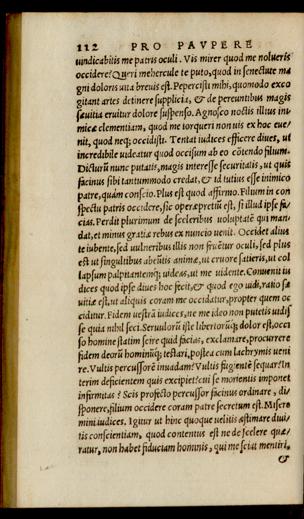 112 PRO PAVPERE
uindicabitis me patris oculi. Vis mirer quod me nolueris
occidere? Queri mehercule te puto, quod in senectute ma
gni doloris una breuis est. Pepercisti mihi, quomodo exco
gitant artes detinere supplicia, & de pereuntibus magis
sæuitia eruitur dolore suspenso. Agnosco noctis illius ini=
micæ clementiam, quod me torqueri non uis ex hoc eue/
nit, quod neq; occidisti. Tentat iudices efficere diues, ut
incredibile uideatur quod occisum ab eo cōtendo filium.
Dicturū nunc putatis, magis interesse securitatis, ut quis
facinus sibi tantummodo credat, & id tutius esse inimico
patre, quàm conscio. Plus est quod affirmo. Filium in con
spectu patris occidere, sic operæpretiū est, si illud ipse fa=
cias. Perdit plurimum de sceleribus uoluptatē qui man/
dat, et minus gratiæ rebus ex nuncio uenit. Occidet alius
te iubente, sed uulneribus illis non fruētur oculi, sed plus
est ut singultibus abeūtis animæ, ut cruore satieris, ut col
lapsum palpitantemq; uideas, ut me uidente. Conuenit iu
dices quod ipse diues hoc fecit, & quod ego uidi, ratio sæ
uitiæ est, ut aliquis coram me occidatur, propter quem oc
ciditur. Fidem uestrā iudices, ne me ideo non putetis uidis
se quia nihil feci. Seruulorū iste libertorūq; dolor est, occi
so homine statim scire quid facias, exclamare, procurrere
fidem deorū hominūq; testari, postea cum lachrymis ueni
re. Vultis percussorē inuadam? Vultis fugientē sequar? In
terim deficientem quis excipiet? cui se morientis imponet
infirmitas? Scis profecto percussor facinus ordinare, di/
sponere, filium occidere coram patre secretum est. Misere
mini iudices. Igitur ut hinc quoque uelitis æstimare diui/
tis conscientiam, quod contentus est ne de scelere quæ/
ratur, non habet fiduciam hominis, qui me sciat mentiri,
&